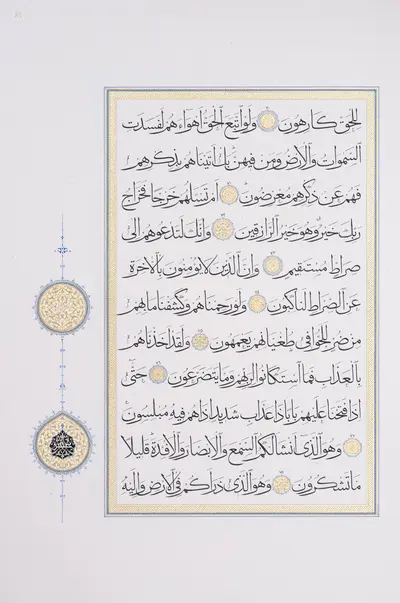 للحق كارهون ولو اتبع الحق اهواءهم لفسدت
السموات والارض ومن فيهن بل اتيناهم بذكرهم
فهم عن ذكرهم معرضون ام تسئلهم خرجا فخراج
ربك خير وهو خير الرازقين وانك لتدعوهم الى
صراط مستقيم وان الذين لا يومنون بالاخرة
عن الصراط لناكبون ولو رحمناهم وكشفنا ما بهم
من ضر للجوا في طغيانهم يعمهون ولقد اخذناهم
بالعذاب فما استكانوا لربهم وما يتضرعون حتى
اذا فتحنا عليهم بابا ذا عذاب شديد اذا هم فيه مبلسون
وهو الذي انشا لكم السمع والابصار والافدة قليلا
ما تشكرون وهو الذي ذراكم في الارض واليه